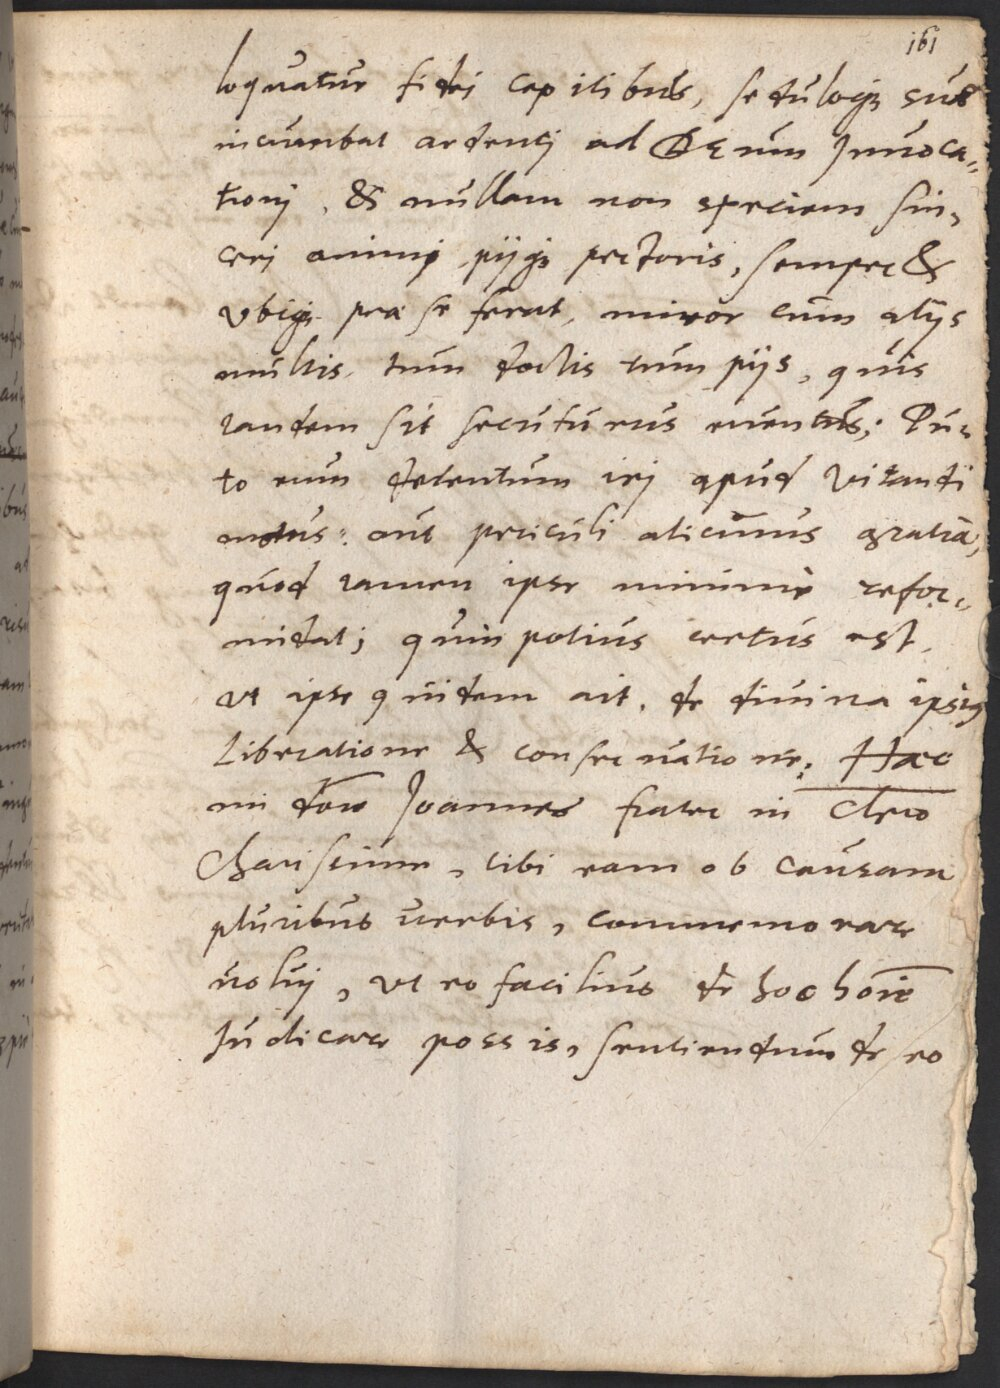 161
loquatur fidej capitibus, seduloqꝫ suæ
incumbat ardentj ad DEum Jnuoca⸗
tionj, & nullam non speciem sin⸗
cerj animj pijqꝫ pectoris, semper &
vbiqꝫ præ se ferat, miror cum alijs
multis, tum doctis tum pijs, quis
tandem sit secuturus euentus; Pu⸗
to eum detentum irj apud vitandi
motus: aut periculi alicuius gratia,
quod tamen ipse minimè refor⸗
midat; quin potius certus est,
vt ipse quidem ait, de diuina ipsius
Liberatione & conseruatione: Hæc
mi dōie Joannes frater in Chro
Charissime, tibi eam ob causam
pluribus uerbis, commemorare
uoluj, vt eo facilius de hoc hōie
Judicare possis, sentiendum de eo